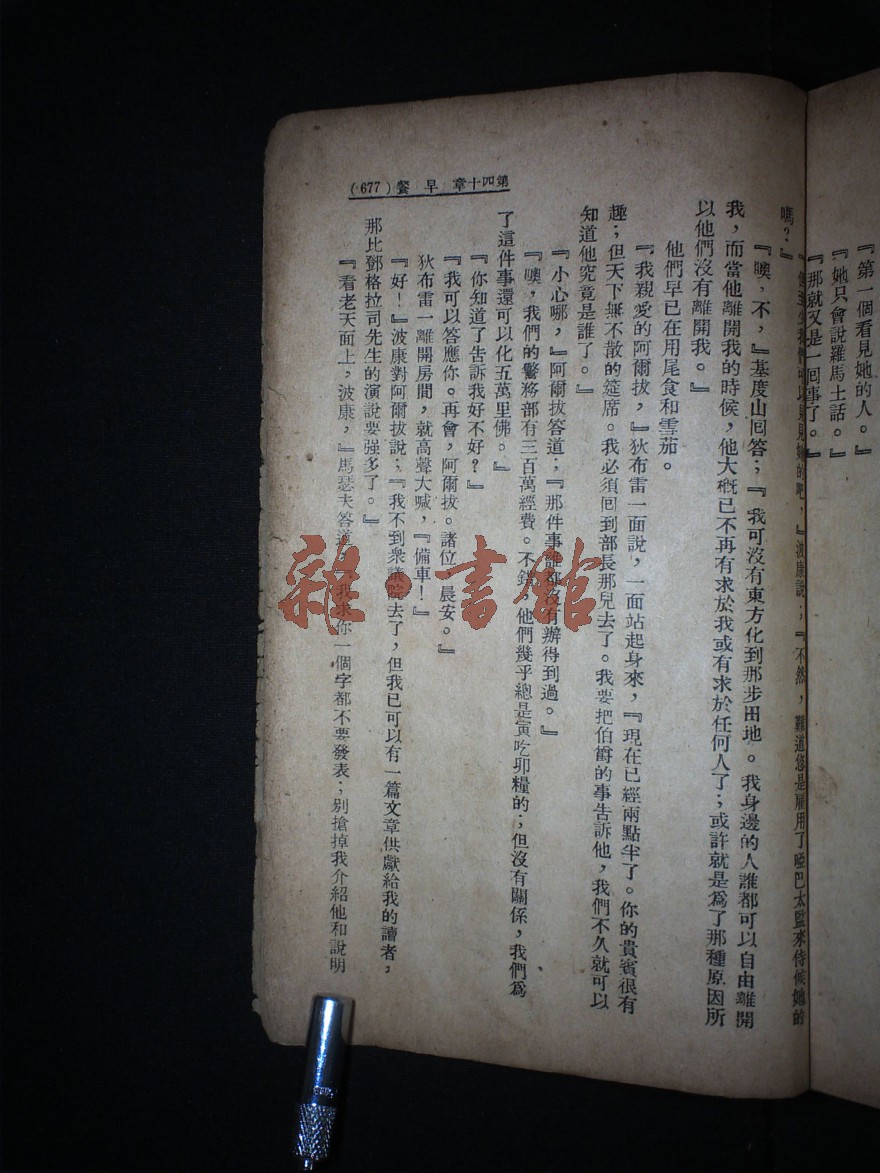 『第一個看見她的人。』
『她只會說羅馬土話。』
『那就又是一回事了。』
以見見她的吧，』波康說；『不然，難道您是雇用了啞巴太監來侍候她的
嗎？』
『噢，不，』基度山回答；『我可沒有東方化到那步田地。我身邊的人誰都可以自由離開
我，而當他離開我的時候，他大概已不再有求於我或有求於任何人了；或許就是爲了那種原因所
以他們沒有離開我。』
他們早已在用尾食和雪茄。
『我親愛的阿爾拔，』狄布雷一面說，一面站起身來，『現在已經兩點半了。你的貴賓很有
趣；但天下無不散的筵席。我必須回到部長那兒去了。我要把伯爵的事告訴他，我們不久就可以
知道他究竟是誰了。』
『小心哪，』阿爾拔答道；『那件事誰都沒有辦得到過。』
『噢，我們的警務部有三百萬經費。不錯，他們幾乎總是寅吃卯糧的；但沒有關係，我們爲
了這件事還可以化五萬里佛。』
『你知道了告訴我好不好？』
『我可以答應你。再會，阿爾拔。諸位，晨安。』
狄布雷一離開房間，就高聲大喊，『備車！』
『好！』波康對阿爾拔說；『我不到衆議院去了，但我已可以有一篇文章供獻給我的讀者，
那比鄧格拉司先生的演說要強多了。』
『看老天面上，波康，』馬瑟夫答道，『我求你一個字都不要發表；別搶掉我介紹他和說明
第四十章 早餐 (677)
雜·書館